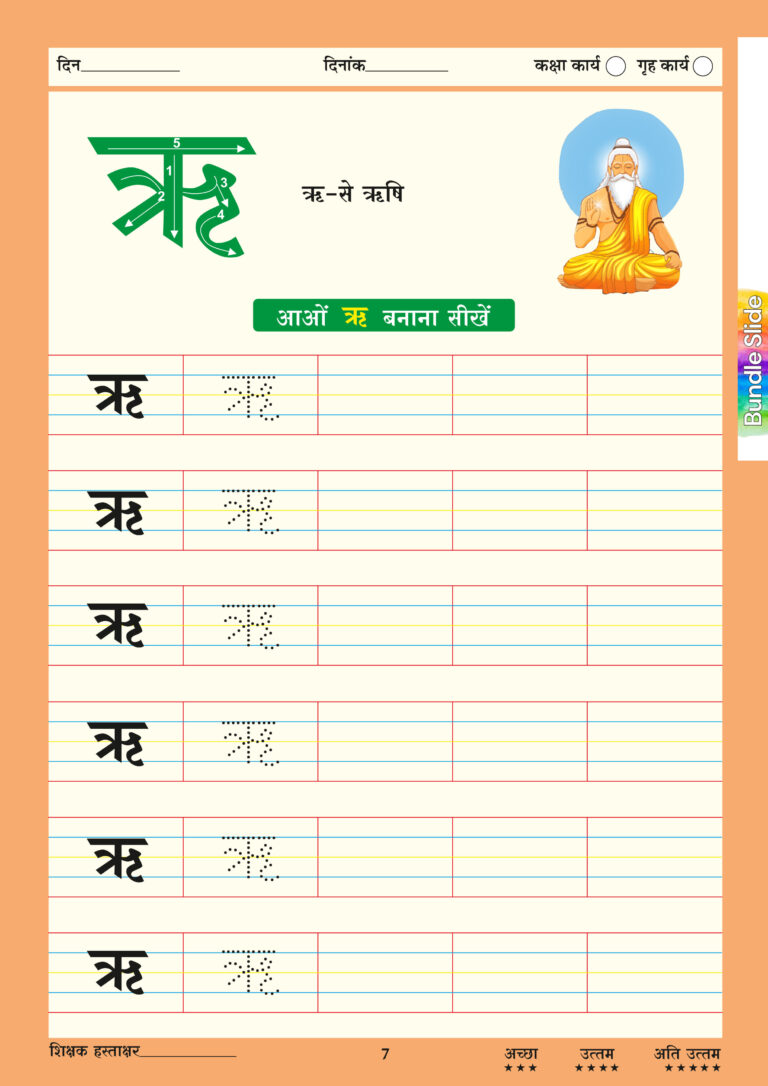 दिन__________ दिनांक__________ कक्षा कार्य गृह कार्य
5
1
2
3
4
ऋ-से ऋषि
आओं ऋ बनाना सीखें
Bundle Slide
ऋ ऋ
ऋ ऋ
ऋ ऋ
ऋ ऋ
ऋ ऋ
ऋ ऋ
शिक्षक हस्ताक्षर__________ 7 अच्छा उत्तम अति उत्तम
★★★ ★★★★ ★★★★★